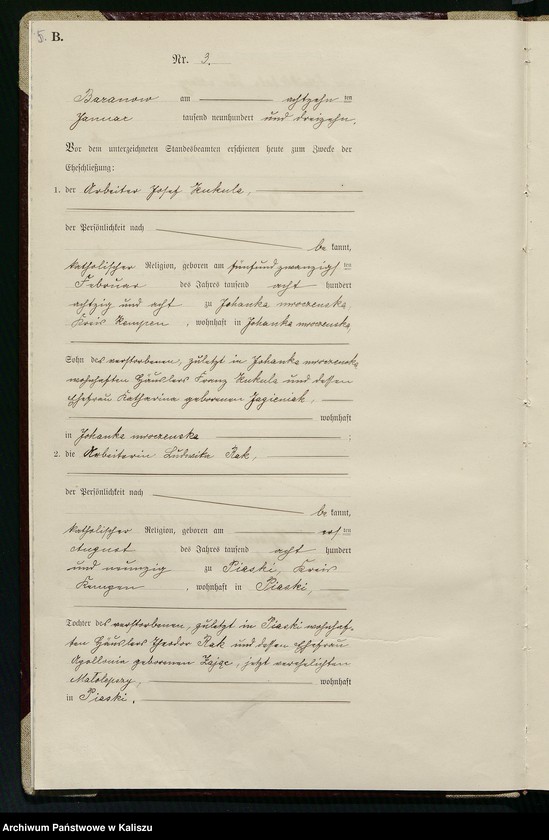 5. B.
Nr. 3.
Baranow am achtzehn ten
Januar tausend neunhundert und dreizehn.
Vor dem unterzeichneten Standesbeamten erschienen heute zum Zwecke der
Eheschließung:
1. der Arbeiter Josef Kukula,
der Persönlichkeit nach
be kannt,
katholischer Religion, geboren am fünfundzwanzigs ten
Februar des Jahres tausend acht hundert
achtzig und acht zu Johanka mroczenska,
Kreis Kempen, wohnhaft in Johanka mroczenska,
Sohn des verstorbenen, zuletzt in Johanka mroczenska
wohnhaften Häuslers Franz Kukula und dessen
Ehefrau Katharina geborenen Jagieniak,
wohnhaft
in Johanka mroczenska ;
2. die Arbeiterin Ludwika Rak,
der Persönlichkeit nach
be kannt,
katholischer Religion, geboren am ers ten
August des Jahres tausend acht hundert
und neunzig zu Piaski, Kreis
Kempen, wohnhaft in Piaski,
Tochter des verstorbenen, zuletzt in Piaski wohnhaf-
ten Häuslers Theodor Rak und dessen Ehefrau
Apollonia geborenen Zając, jetzt verehelichten
Małolepszy, wohnhaft
in Piaski.
Archiwum Państwowe w Kaliszu